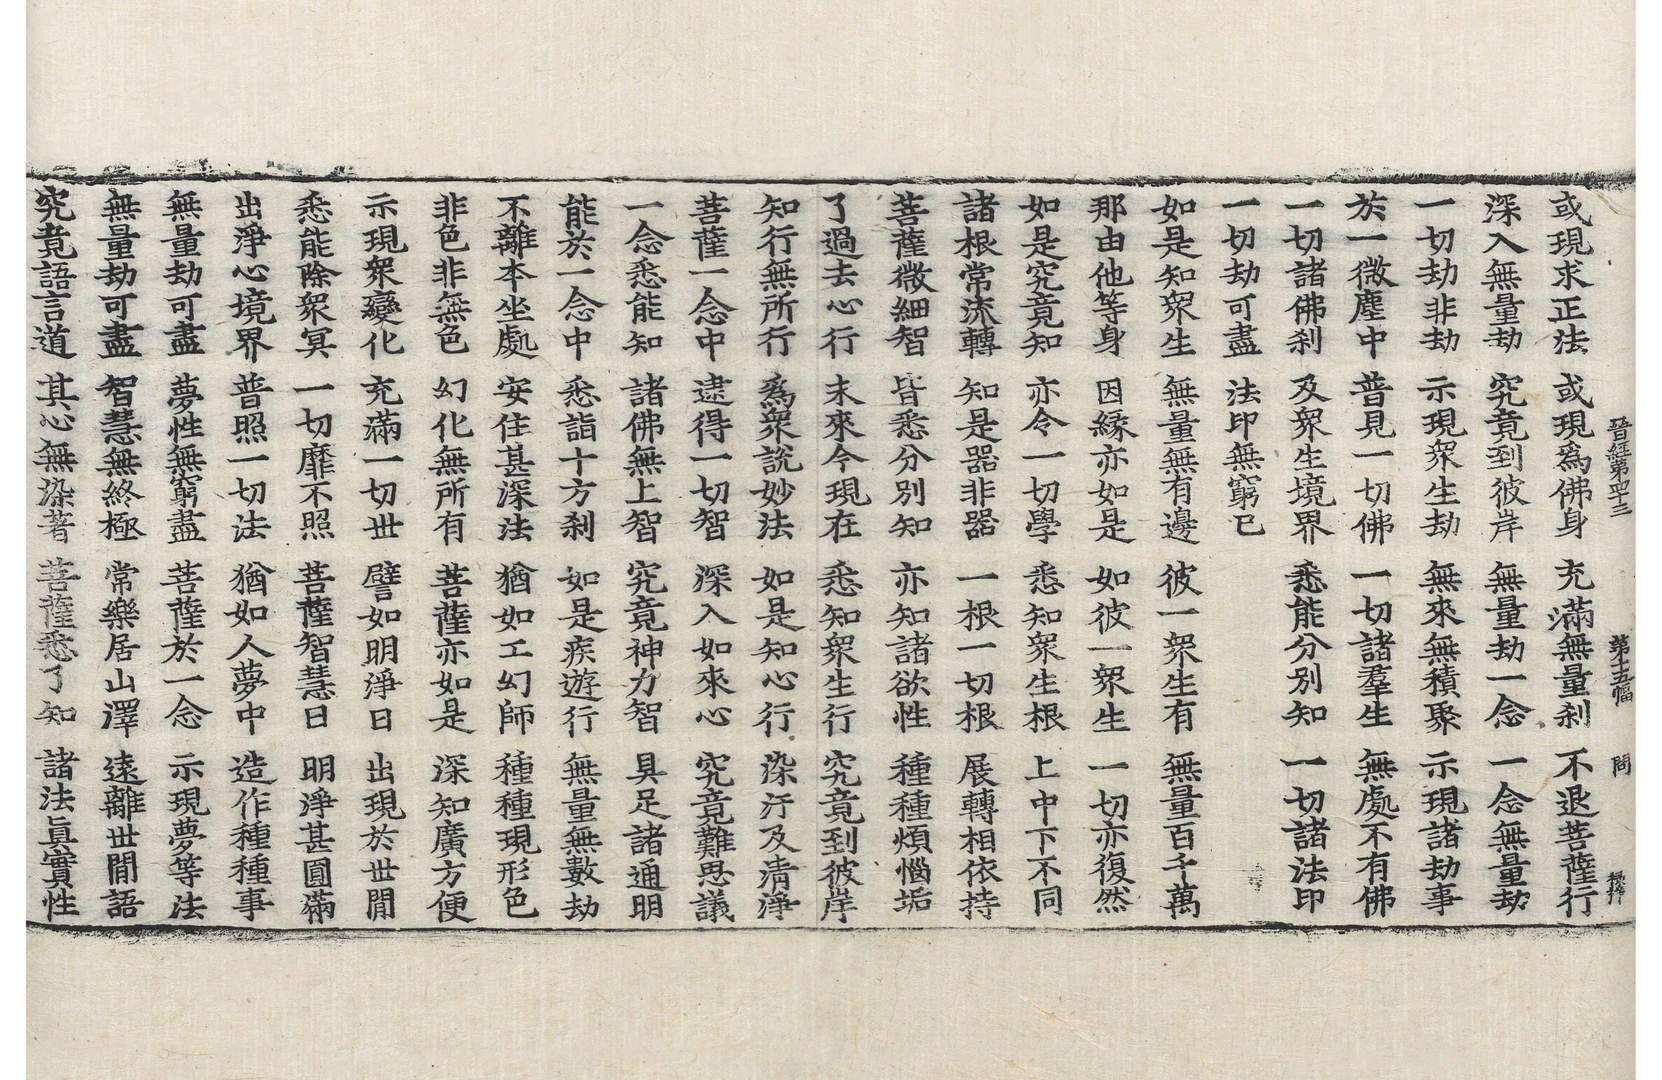 晉經第四十三 第十五幅 問
或現求正法 或現爲佛身 充滿無量刹 不退菩薩行
深入無量劫 究竟到彼岸 無量劫一念 一念無量劫
一切劫非劫 示現衆生劫 無來無積聚 示現諸劫事
於一微塵中 普見一切佛 一切諸羣生 無處不有佛
一切諸佛刹 及衆生境界 悉能分別知 一切諸法印
一切劫可盡 法印無窮已
如是知衆生 無量無有邊 彼一衆生有 無量百千萬
那由他等身 因緣亦如是 如彼一衆生 一切亦復然
如是究竟知 亦令一切學 悉知衆生根 上中下不同
諸根常流轉 知是器非器 一根一切根 展轉相依持
菩薩微細智 皆悉分別知 亦知諸欲性 種種煩惱垢
了過去心行 未來今現在 悉知衆生行 究竟到彼岸
知行無所行 爲衆說妙法 如是知心行 染汙及清淨
菩薩一念中 逮得一切智 深入如來心 究竟難思議
一念悉能知 諸佛無上智 究竟神力智 具足諸通明
能於一念中 悉詣十方刹 如是疾遊行 無量無數劫
不離本坐處 安住甚深法 猶如工幻師 種種現形色
非色非無色 幻化無所有 菩薩亦如是 深知廣方便
示現衆變化 充滿一切世 譬如明淨日 出現於世間
悉能除衆冥 一切靡不照 菩薩智慧日 明淨甚圓滿
出淨心境界 普照一切法 猶如人夢中 造作種種事
無量劫可盡 夢性無窮盡 菩薩於一念 示現夢等法
無量劫可盡 智慧無終極 常樂居山澤 遠離世間語
究竟語言道 其心無染著 菩薩悉了知 諸法眞實性